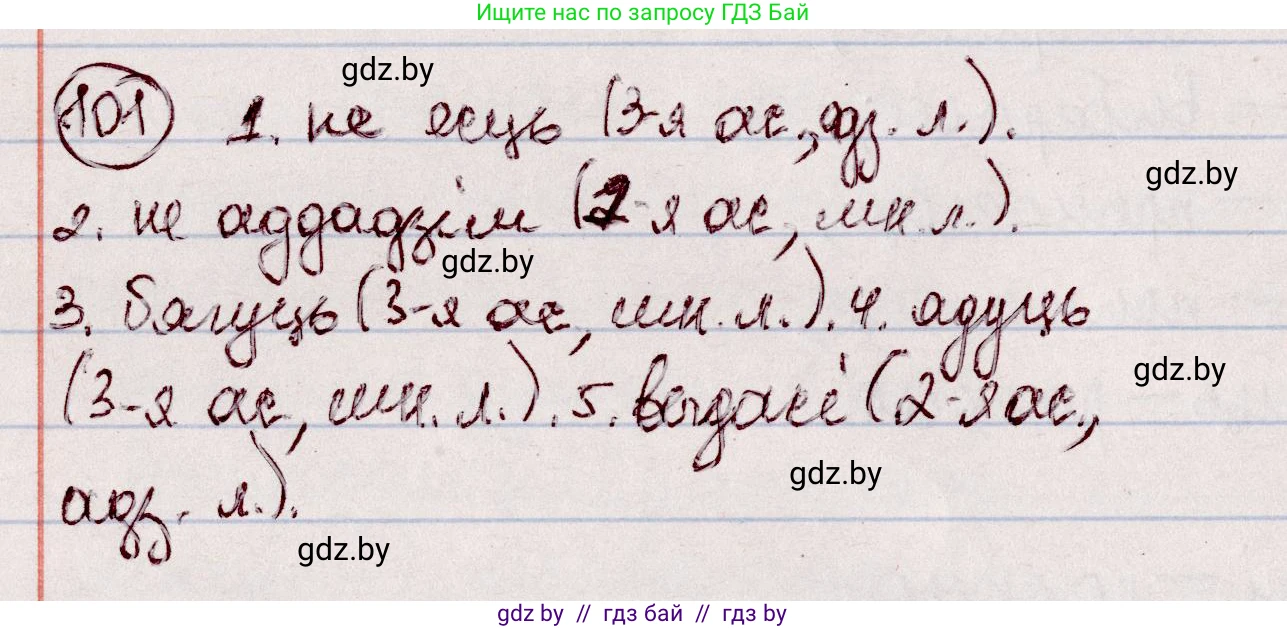 Ищите нас по запросу ГДЗ Бай
gdz.by
101 1. не есць (3-я ас., адз. л.).
gdz.by
2. не аддадзім (1-я ас, мн. л.).
gdz.by
3. бягуць (3-я ас, мн. л.). 4. ядуць
gdz.by
(3-я ас, мн. л.). 5. выдасі (2-я ас.,
gdz.by
адз. л.).
gdz.by
gdz by // гдз бай // гдз by